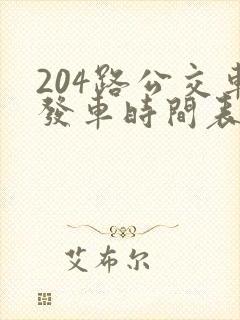 204路公交車
發車時間表
艾布尔